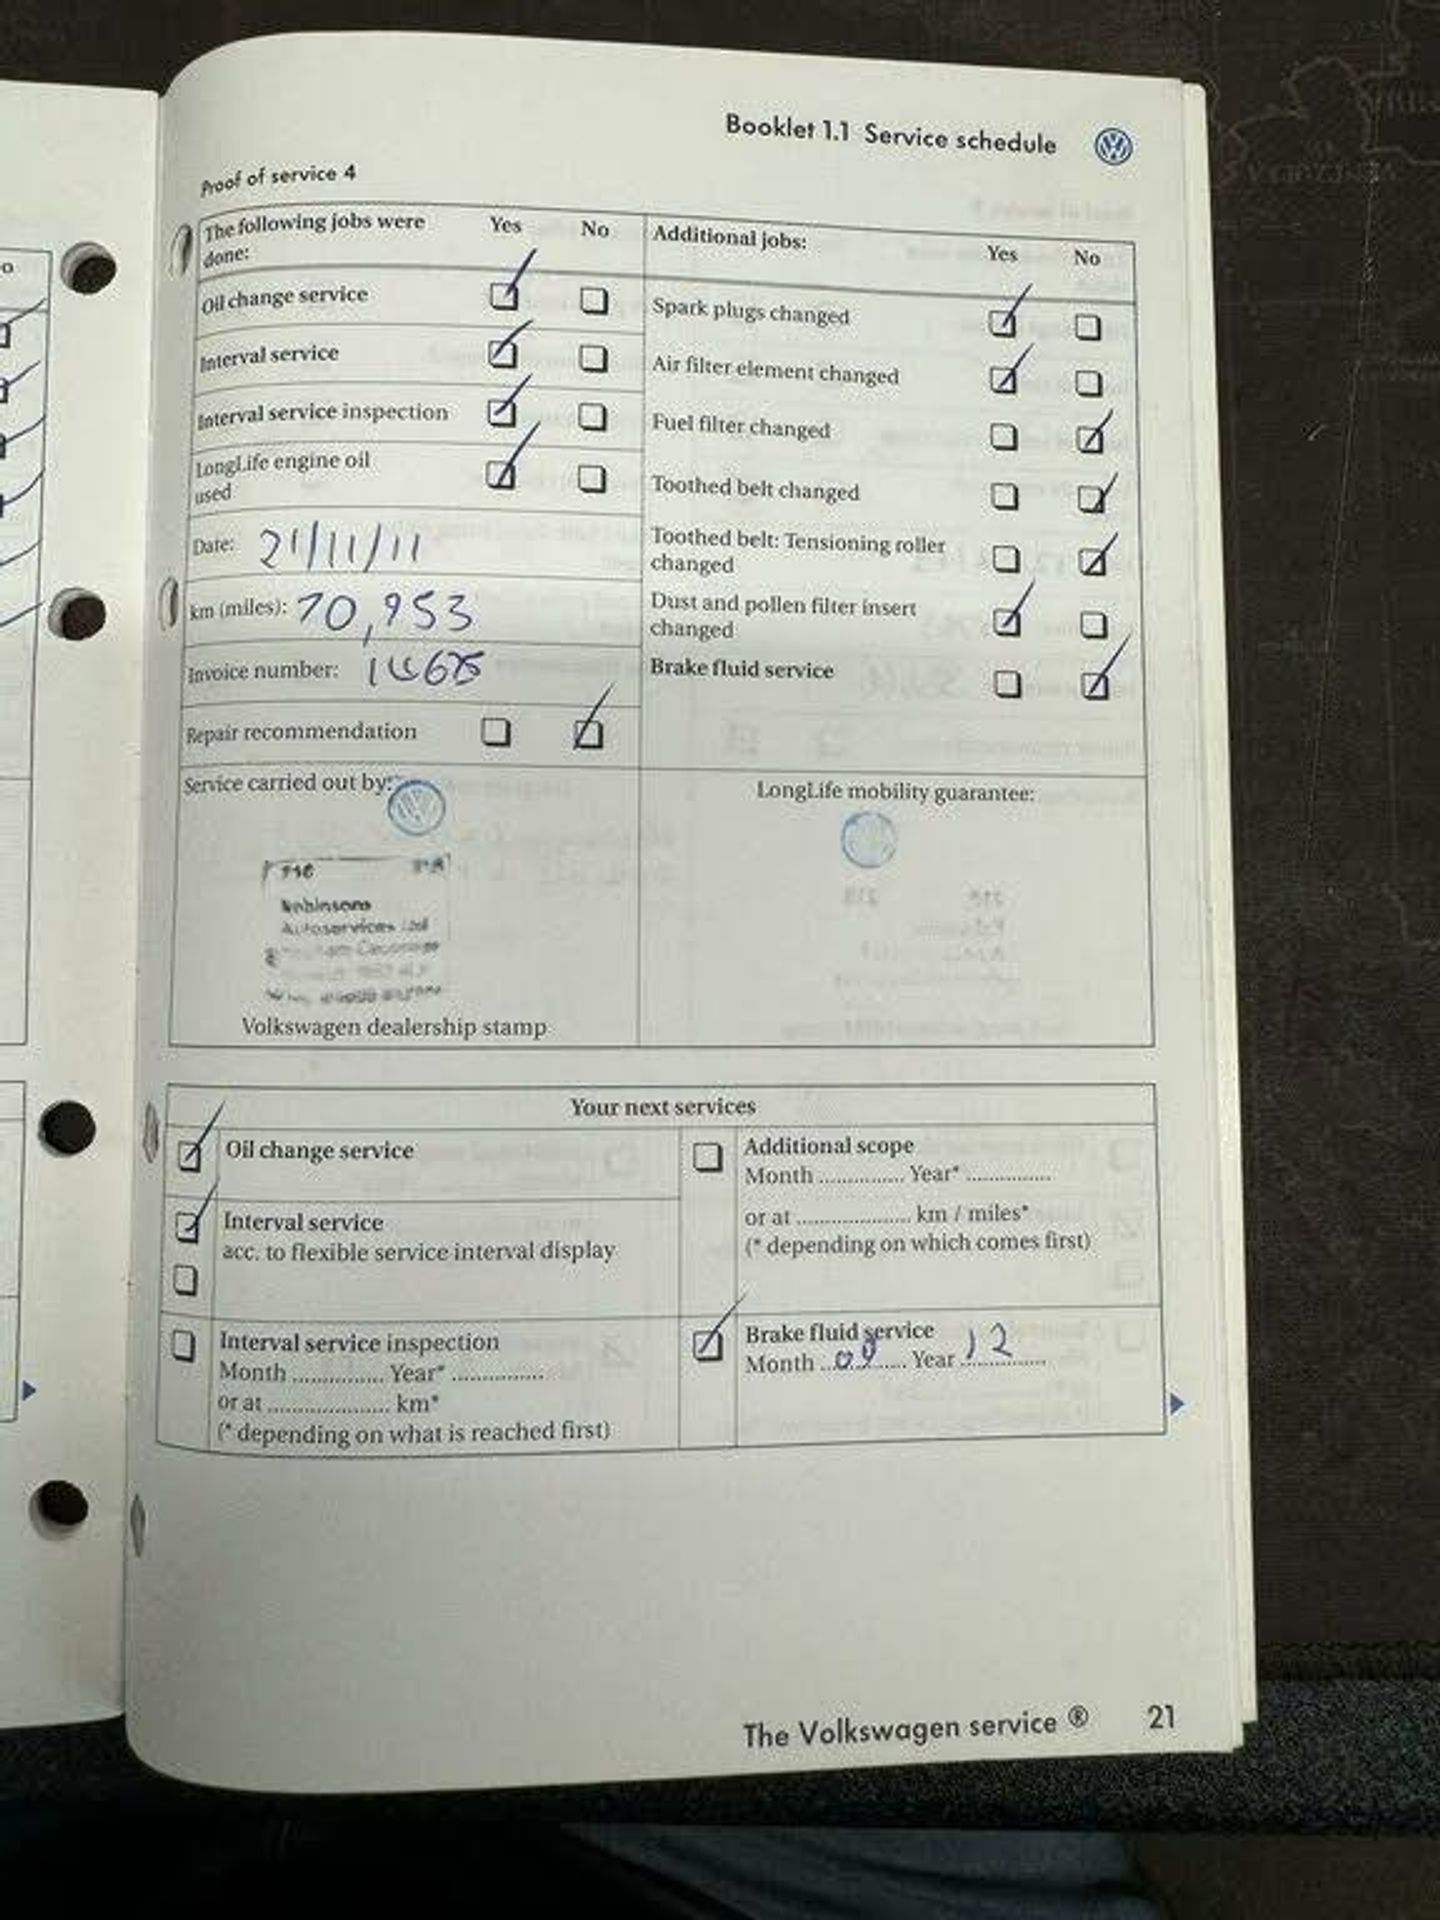 Booklet 1.1 Service schedule
Proof of service 4
The following jobs were done:
Yes
No
Oil change service
Interval service
Interval service inspection
LongLife engine oil used
Date: 21/11/11
km (miles): 70,953
Invoice number:
Repair recommendation
Additional jobs:
Yes
No
Spark plugs changed
Air filter element changed
Fuel filter changed
Toothed belt changed
Toothed belt: Tensioning roller
changed
Dust and pollen filter insert
changed
Brake fluid service
Service carried out by:
Robinsons
Autoservices Ltd
Volkswagen dealership stamp
LongLife mobility guarantee:
Your next services
Oil change service
Interval service
acc. to flexible service interval display
Interval service inspection
Month ............... Year* ...............
or at .................... km*
(* depending on what is reached first)
Additional scope
Month ............... Year* ...............
or at .................... km / miles*
(* depending on which comes first)
Brake fluid service
Month 09 Year 12
The Volkswagen service ® 21